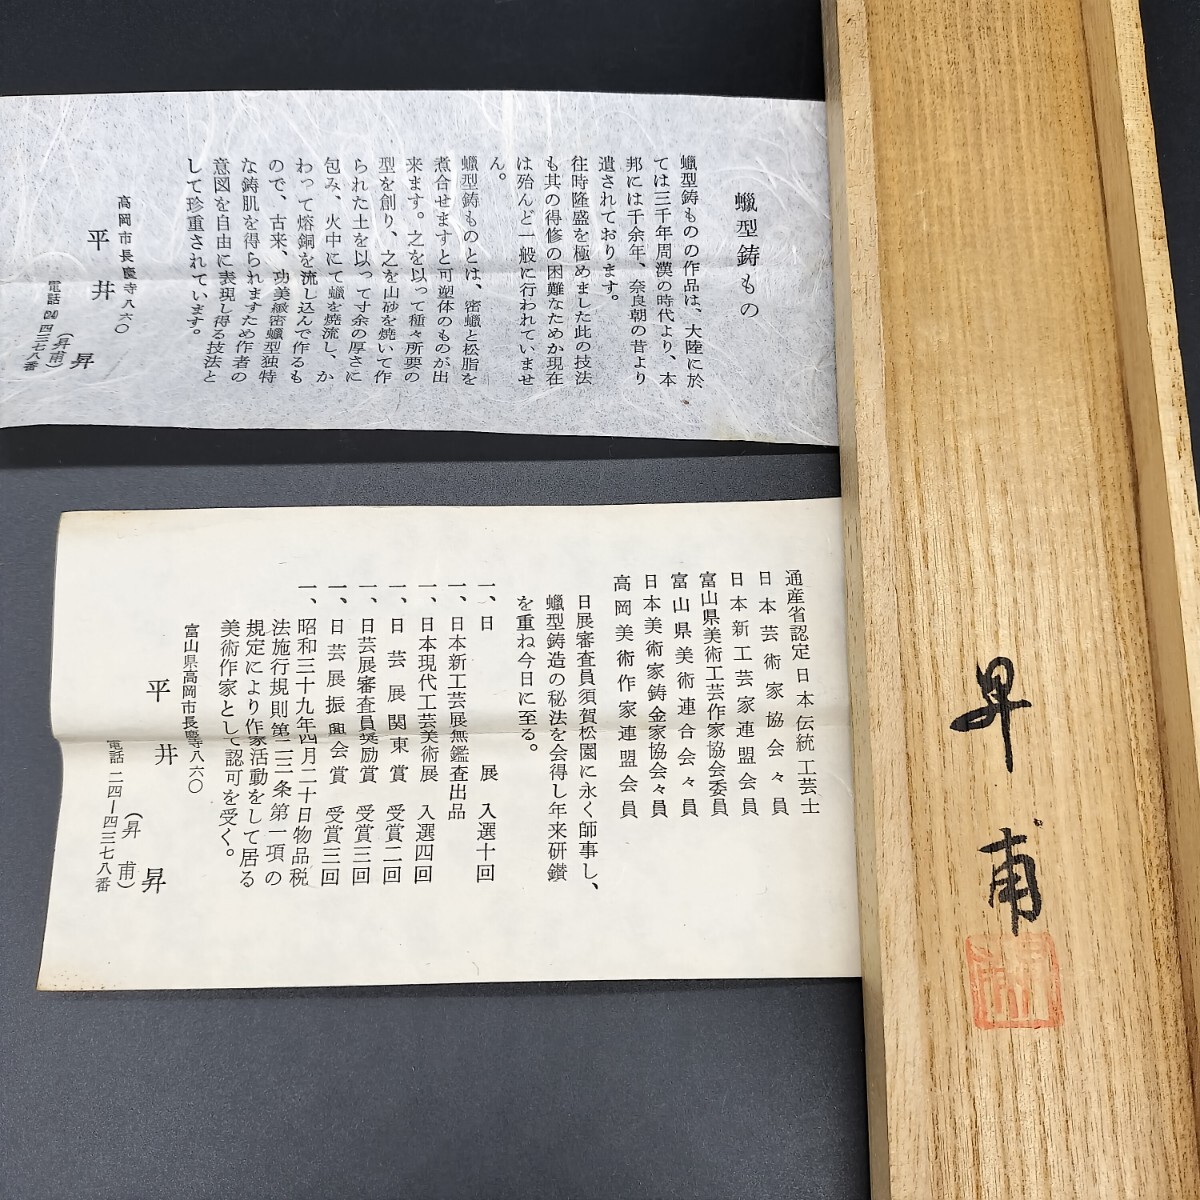 蠟型鋳もの
蠟型鋳ものの作品は、大陸に於
ては三千年周漢の時代より、本
邦には千余年、奈良朝の昔より
遺されております。
往時隆盛を極めました此の技法
も其の得修の困難なためか現在
は殆んど一般に行われていませ
ん。
蠟型鋳ものとは、密蠟と松脂を
煮合せますと可塑体のものが出
来ます。之を以って種々所要の
型を創り、之を山砂を焼いて作
られた土を以って寸余の厚さに
包み、火中にて蠟を焼流し、か
わって熔銅を流し込んで作るも
ので、古来、功美緻密蠟型独特
な鋳肌を得られますため作者の
意図を自由に表現し得る技法と
して珍重されています。
高岡市長慶寺八六〇
平井昇
(昇甫)
電話㉔四三七八番
通産省認定日本伝統工芸士
日本芸術家協会々員
日本新工芸家連盟会員
富山県美術工芸作家協会委員
富山県美術連合会々員
日本美術家鋳金家協会々員
高岡美術作家連盟会員
日展審査員須賀松園に永く師事し、
蠟型鋳造の秘法を会得し年来研鑽
を重ね今日に至る。
一、日展 入選十回
一、日本新工芸展無鑑査出品
一、日本現代工芸美術展 入選四回
一、日芸展関東賞 受賞二回
一、日芸展審査員奨励賞 受賞三回
一、日芸展振興会賞 受賞三回
一、昭和三十九年四月二十日物品税
法施行規則第二三条第一項の
規定により作家活動をして居る
美術作家として認可を受く。
富山県高岡市長慶寺八六〇
平井昇
(昇甫)
電話 二四ー四三七八番
昇甫